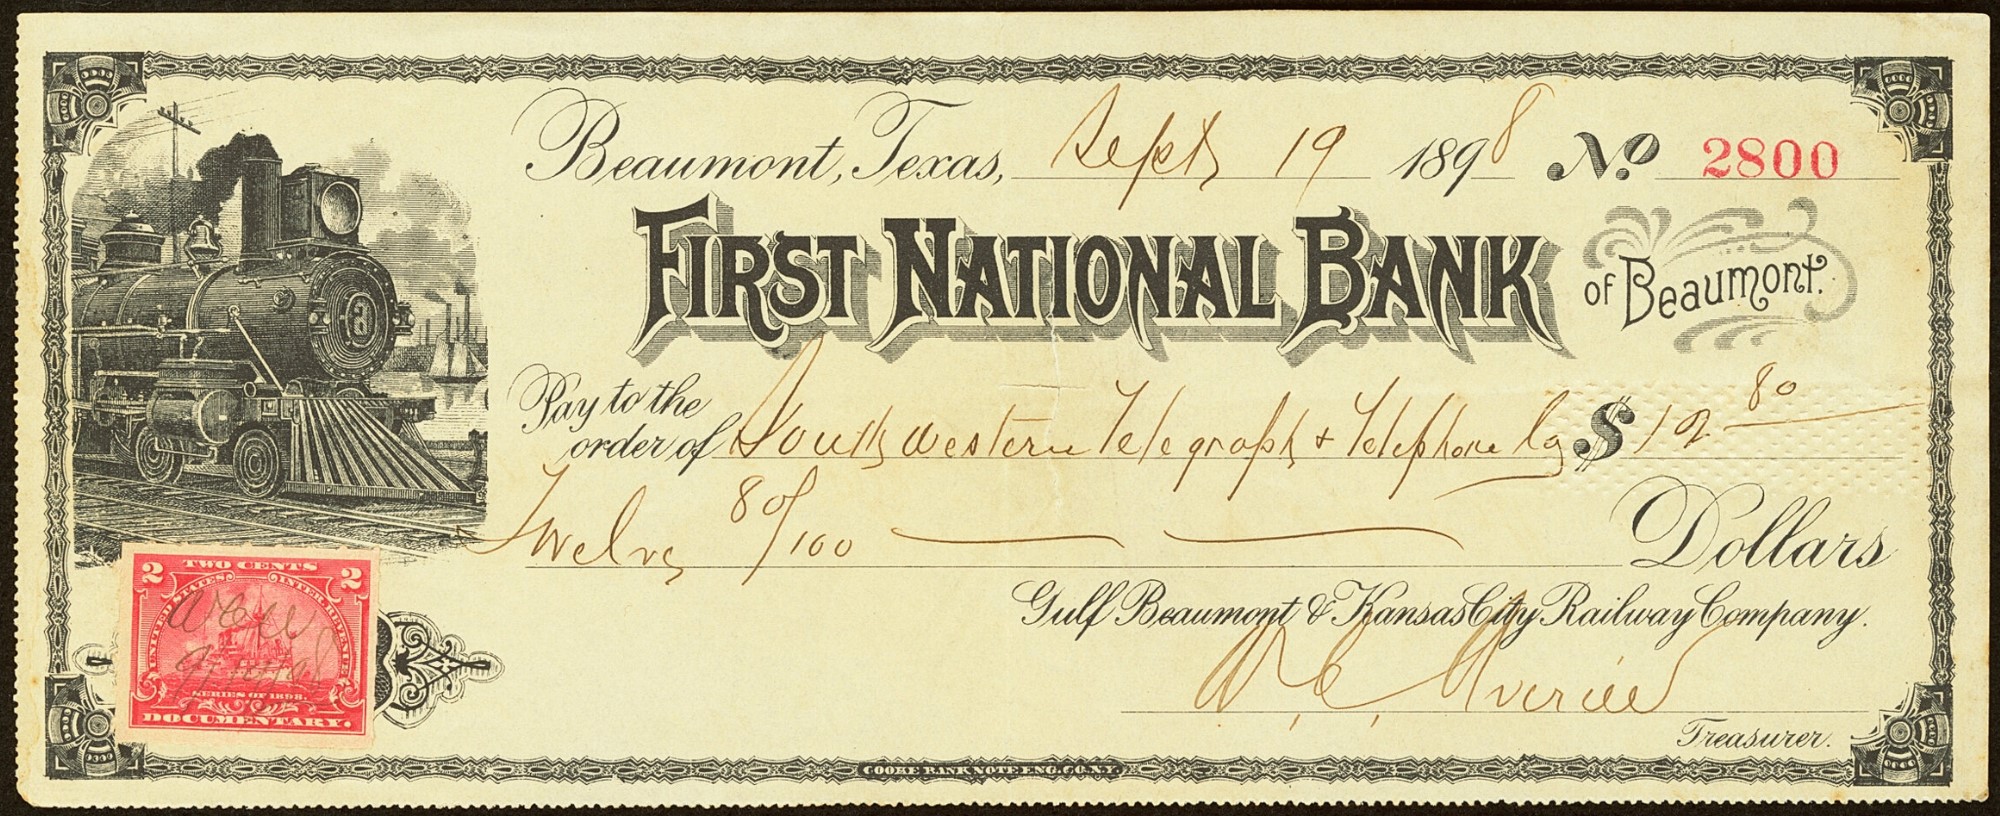 Beaumont, Texas, Sept 19 1898 No. 2800
First National Bank of Beaumont.
Pay to the order of Southwestern Telegraph & Telephone Co $12 80
Twelve 80/100 Dollars
Gulf Beaumont & Kansas City Railway Company.
Treasurer.
2 TWO CENTS 2
UNITED STATES INTER. REVENUE
SERIES OF 1898.
DOCUMENTARY.
COOKE BANK NOTE ENG. CO. N.Y.